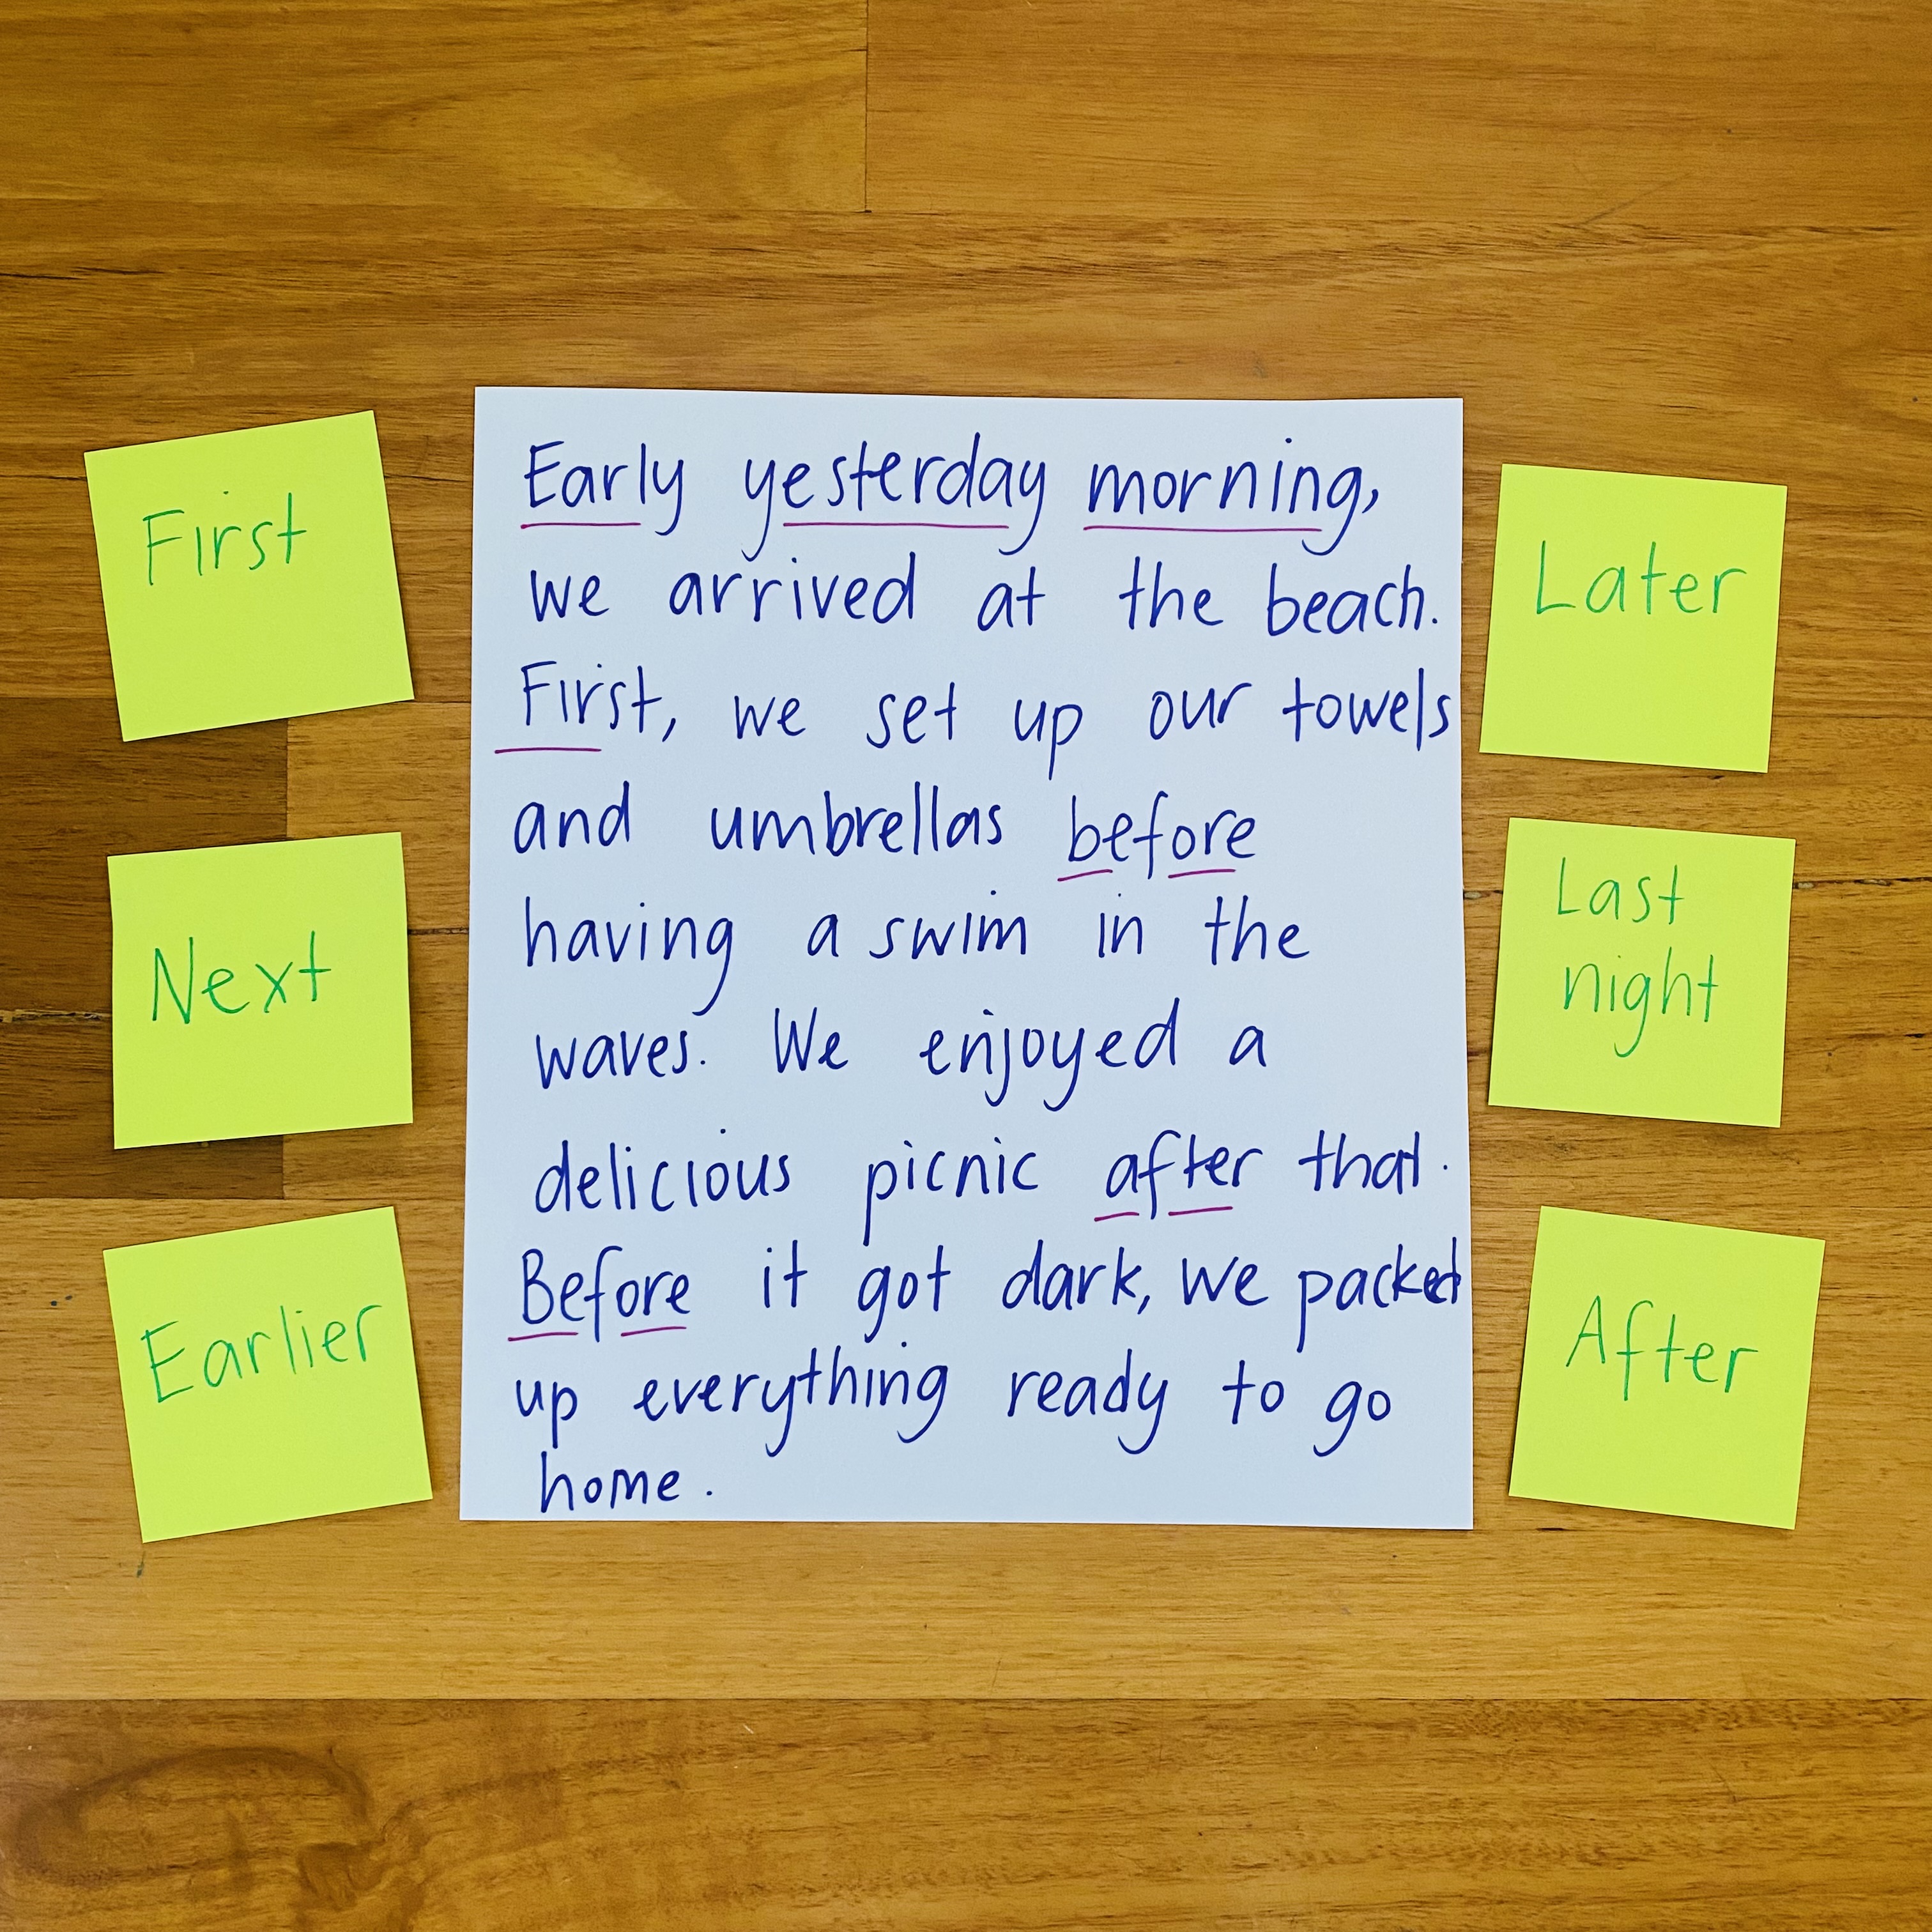 First
Next
Earlier
Early yesterday morning,
we arrived at the beach.
First, we set up our towels
and umbrellas before
having a swim in the
waves. We enjoyed a
delicious picnic after that.
Before it got dark, we packed
up everything ready to go
home.
Later
Last
night
After